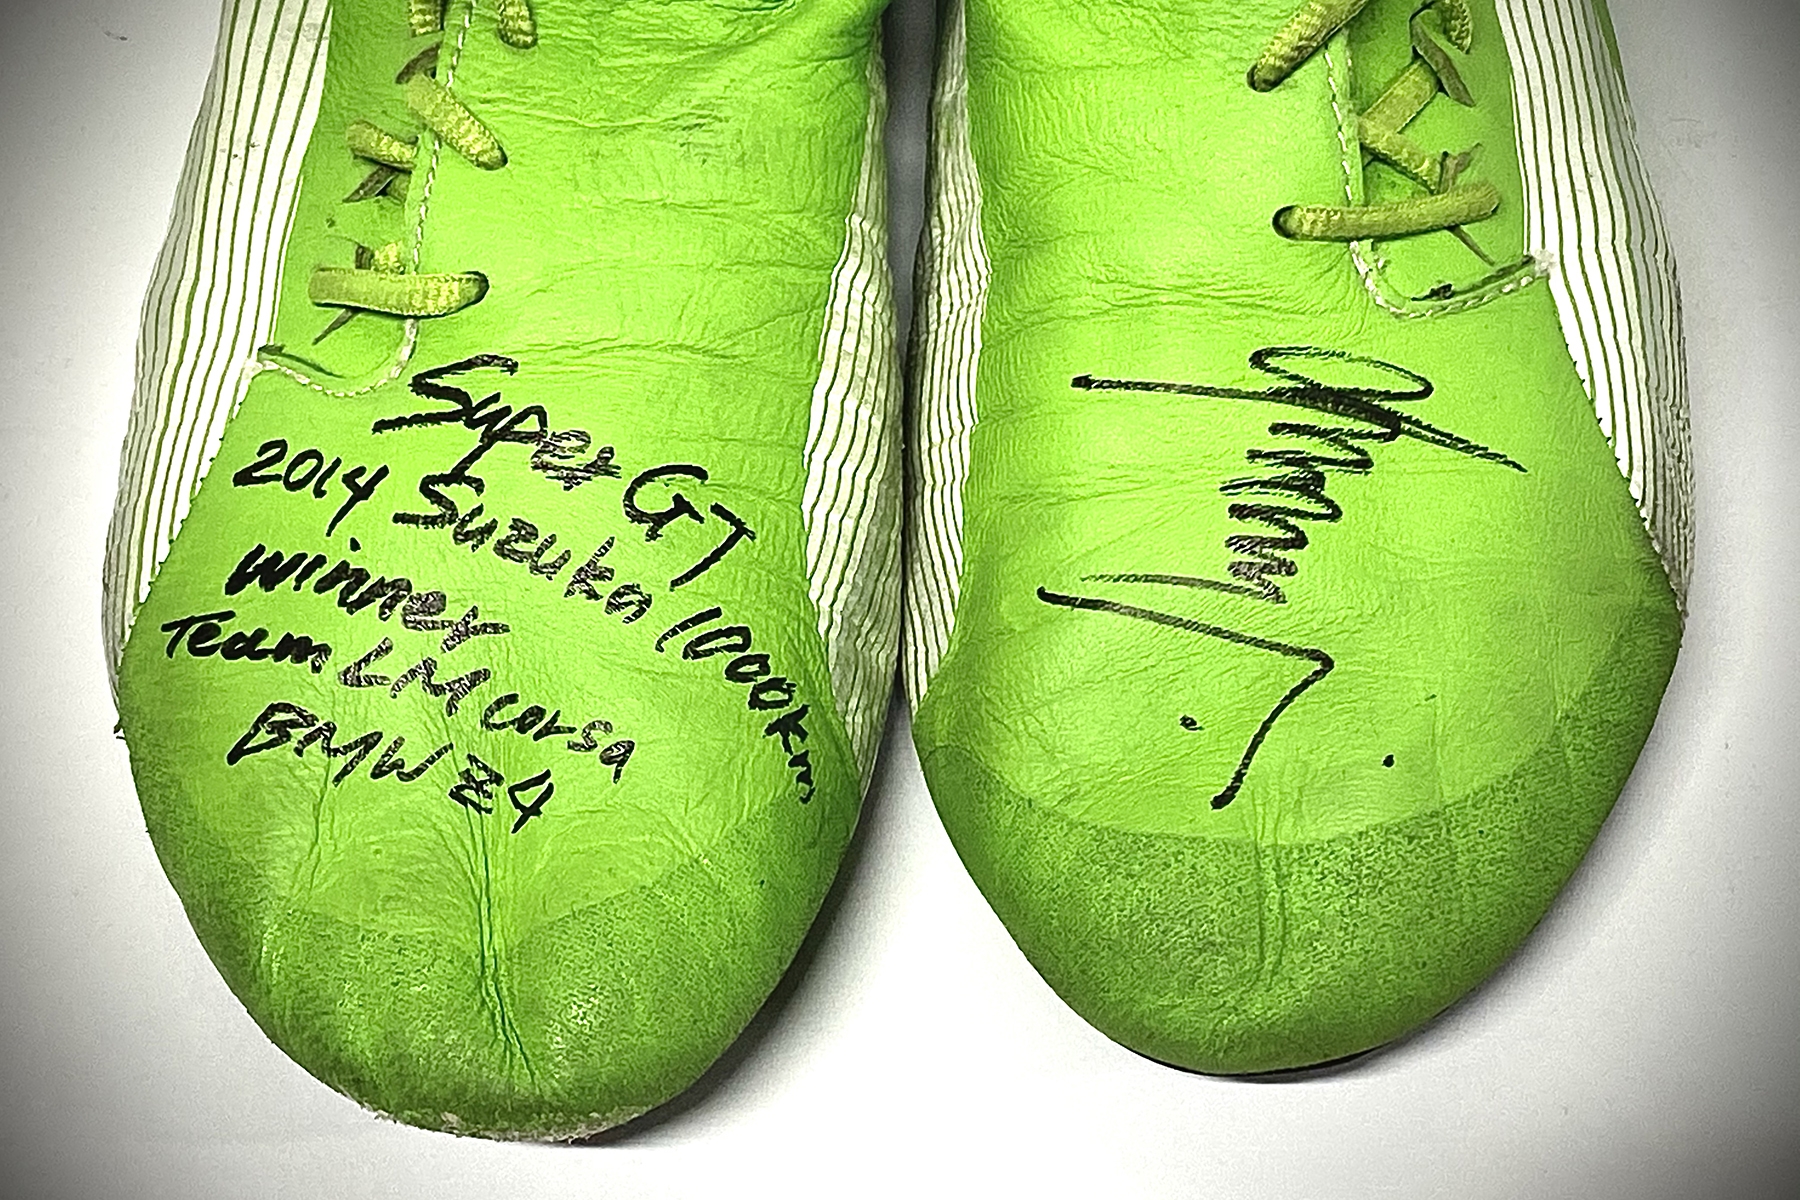 Super GT
2014 Suzuka 1000km
winner
Team LM corsa
BMW Z4